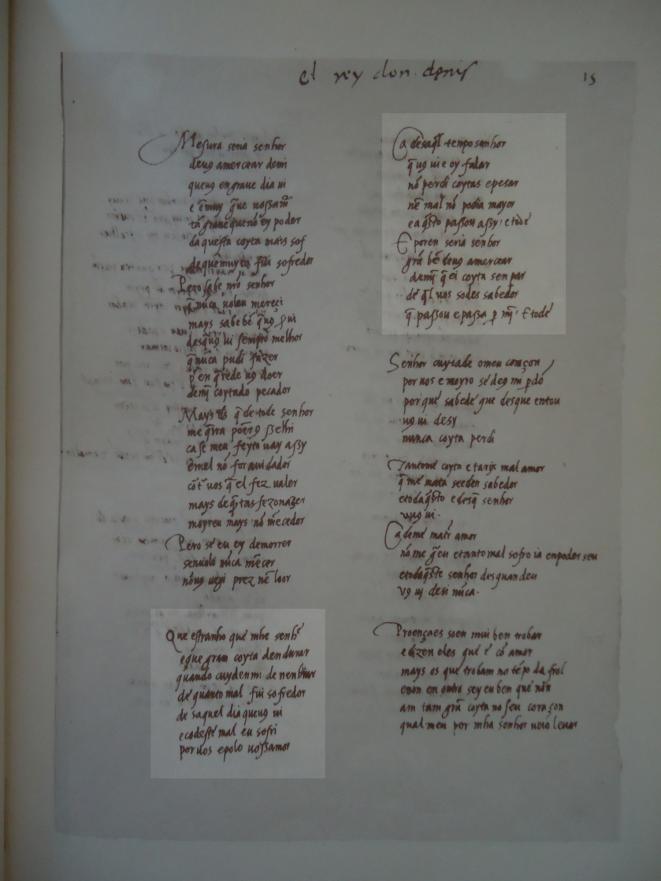 el rey don denis
15
Mesura seria senhor
deuos amercear demi
queuos en graue dia ui
e
tã graue quenõ ey poder
daquesta coyta mays sof
de fui sofredor
Pero sabe nr̃o senhor
q̃ nũca uoleu mereci
mays sabe bẽ q̃ uꝯ, s̃ ui
desq̃ uꝯ ui senp̃ o melhor
q̃ nũca pudi fazer
ꝑ en q̃rede uꝯ doer
demĩ coytado pecador
Mays q̃ de tode senhor
me q̃ira
ca se meu feyto uay assy
emel nõ for aiudador
cõt uos q̃ el fez ualer
mays de q̃ntas fezonazer
moyreu mays nõ mecedor
Pero se eu ey demorrer
senuolo nũca mẽcer
nõ uꝯ ueji prez nẽ loor
Que estranho que mhe senhʳ
e que gran coyta dendurar
quando cuyden mi de nenbrar
de quanto mal fui sofredor
de saquel dia queuꝯ ui
e todeste mal eu sofri
por uos e polo uossamor
Ca des aq̃l tenpo senhor
q̃ uꝯ ui e oy falar
nõ perdi coytas e pesar
nẽ mal nõ podia mayor
e a q̃sto passou assy e tode
E poren seria senhor
grã bẽ deuꝯ amercear
de mĩ q̃ ei coyta sen par
de q̃l uos sodes sabedor
q̃ passou e passa ꝑ mĩ e tode
Senhor cuytade o meu coraçon
por uos e moyro se deꝯ mi pʳdõ
por que sabede que desque entou
uꝯ ui desy
nunca coyta perdi
Tantome coyta e tarix mal amor
q̃ me mata seeden sabedor
e todaq̃sto e desq̃ senhor
uꝯ ui
Ca deme matʳ amor
nõ me g̃u e tanto mal sofro ia en poder seu
e todaq̃ste senhor des quan deu
uꝯ ui desi nũca
Proençaes soen mui ben trobar
e dizen eles que e cõ amor
mays os que trobam no tẽpo da frol
e non en outro sey eu ben que nõn
am tam grã coyta no seu coraçon
qual meu por mha senhor ueio leuar